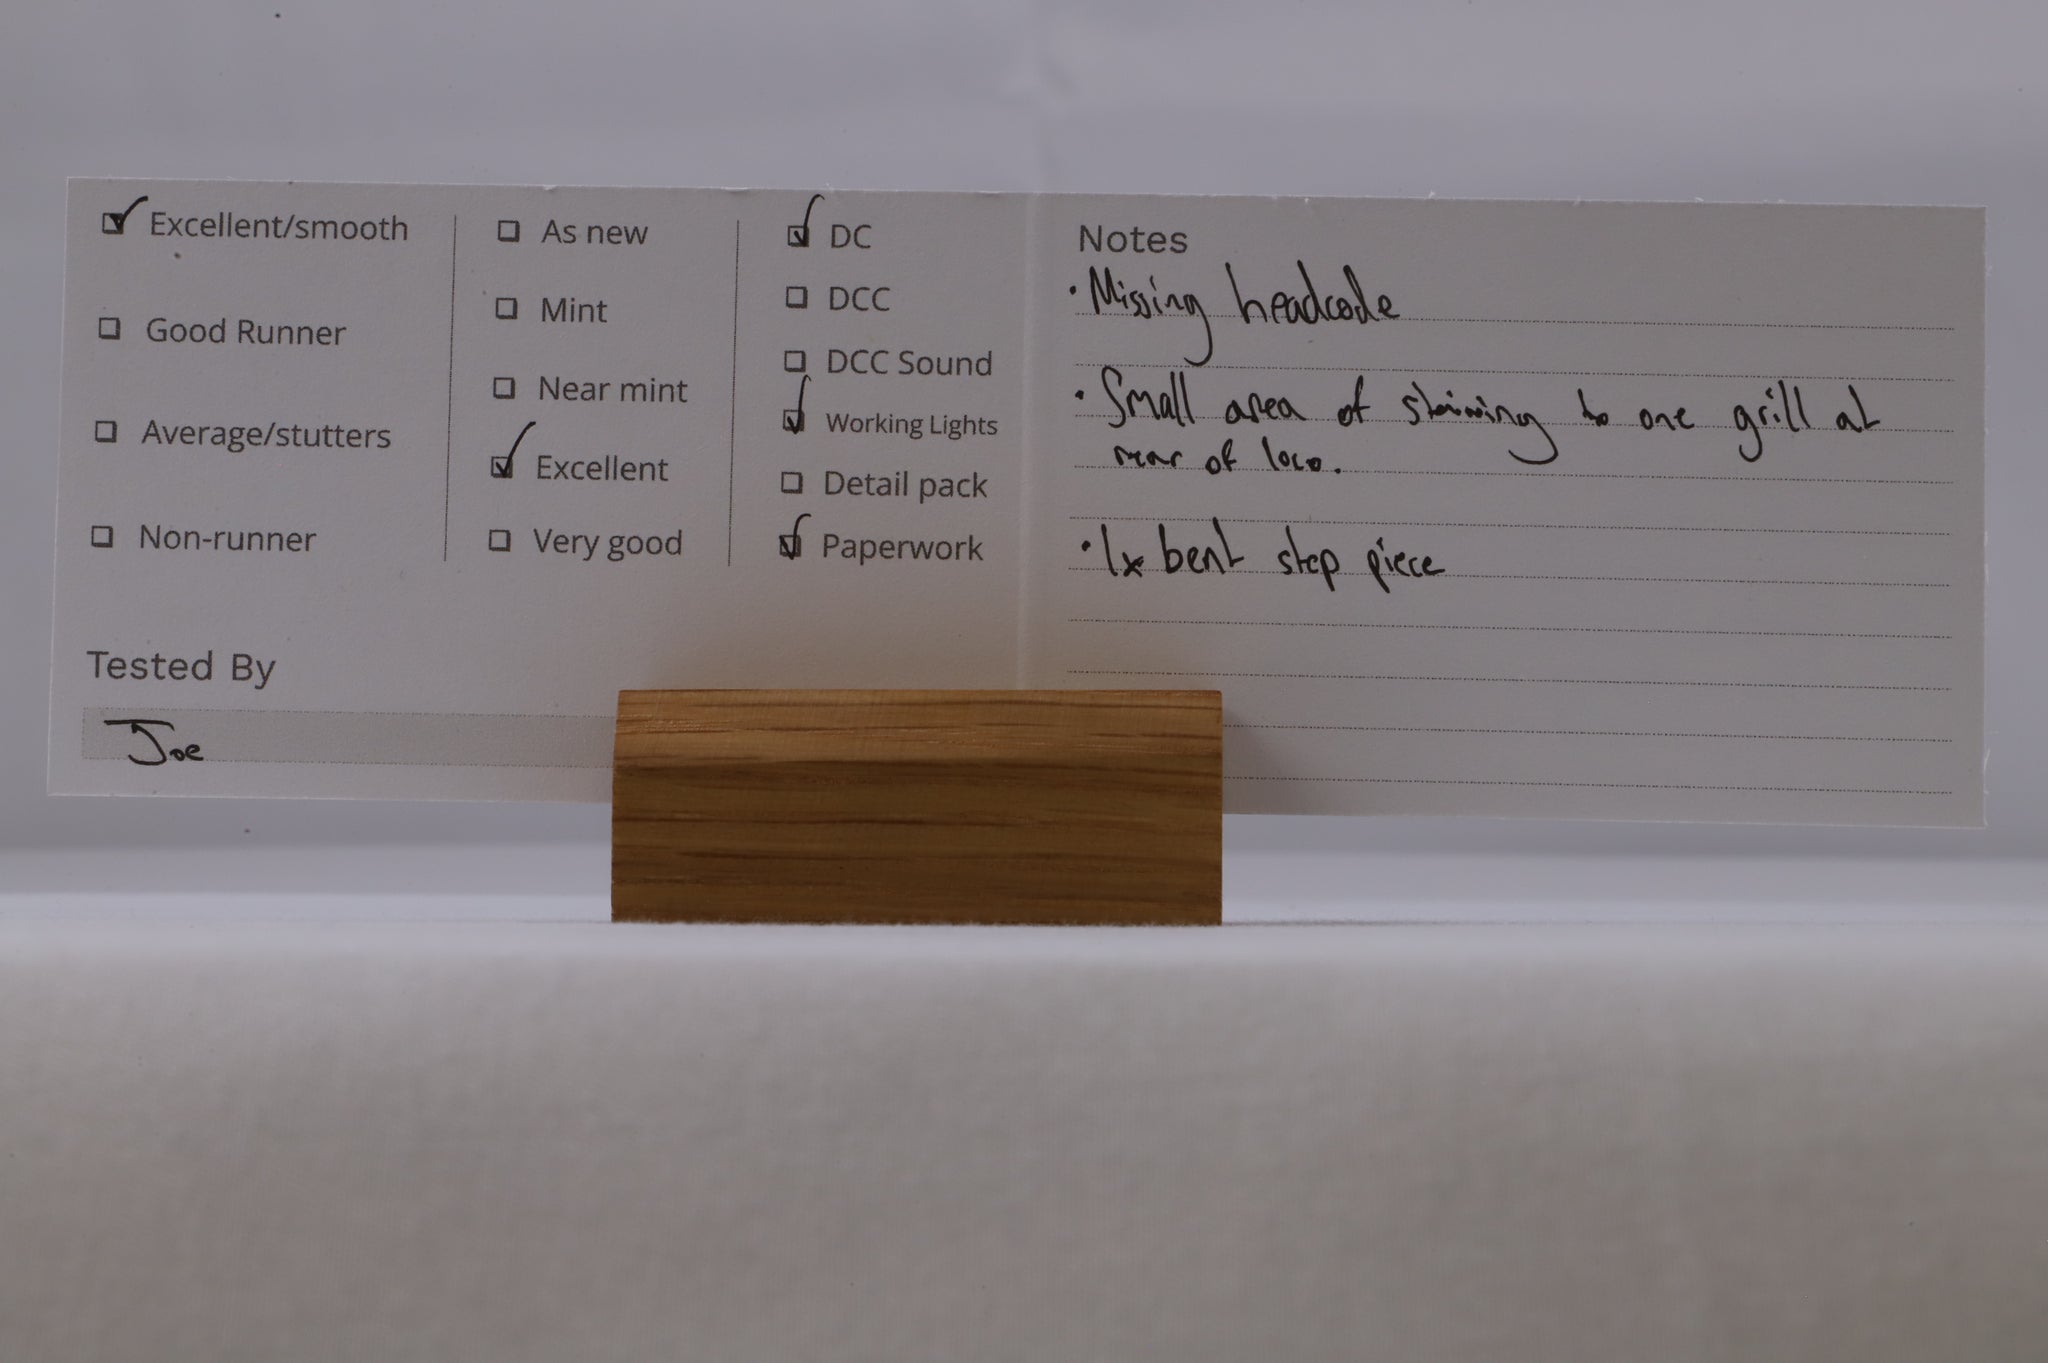 Excellent/smooth
Good Runner
Average/stutters
Non-runner
As new
Mint
Near mint
Excellent
Very good
DC
DCC
DCC Sound
Working Lights
Detail pack
Paperwork
Tested By
Joe
Notes
• Missing headcode
• Small area of staining to one grill at
rear of loco.
• 1x bent step piece